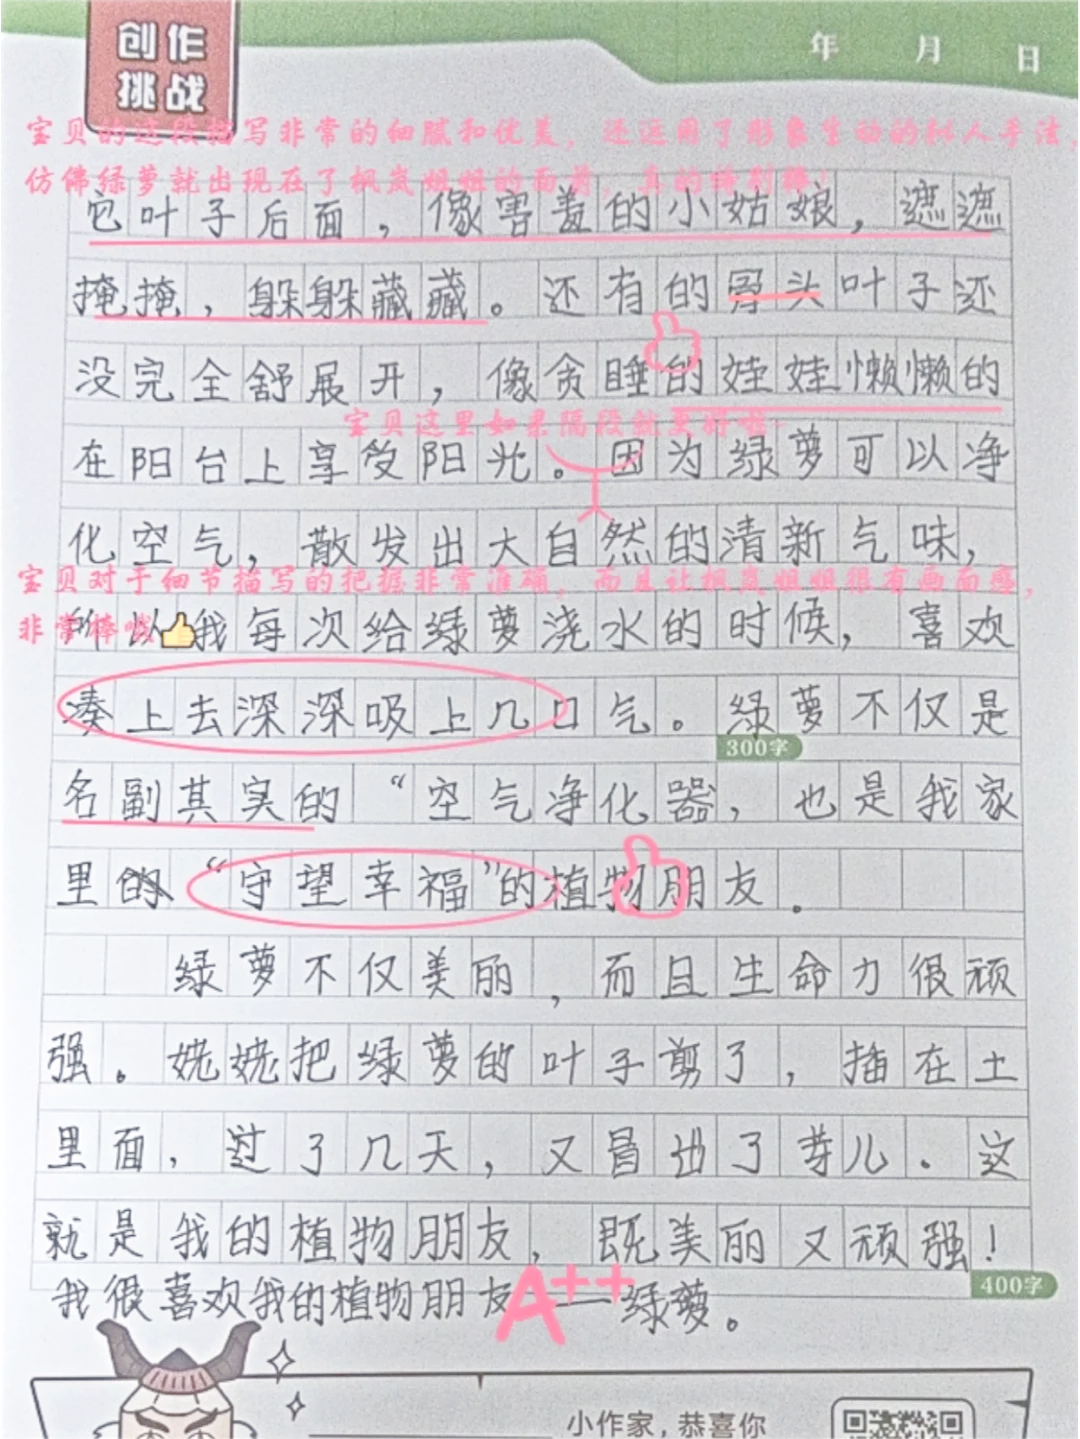 创作
挑战
年 月 日
宝贝的这段描写非常的细腻和优美，还运用了形象生动的拟人手法，
仿佛绿萝就出现在了枫岚姐姐的面前，真的特别棒！
它叶子后面，像害羞的小姑娘，遮遮
掩掩，躲躲藏藏。还有的骨头叶子还
没完全舒展开，像贪睡的娃娃懒懒的
宝贝这里如果隔段就更好啦~
在阳台上享受阳光。因为绿萝可以净
化空气，散发出大自然的清新气味，
宝贝对于细节描写的把握非常准确，而且让枫岚姐姐很有画面感，
非常棒哦👍
所以我每次给绿萝浇水的时候，喜欢
凑上去深深吸上几口气。绿萝不仅是
300字
名副其实的“空气净化器，也是我家
里的“守望幸福”的植物朋友。
绿萝不仅美丽，而且生命力很顽
强。姥姥把绿萝的叶子剪了，插在土
里面，过了几天，又冒出了芽儿。这
就是我的植物朋友，既美丽又顽强！
400字
我很喜欢我的植物朋友——绿萝。
A++
小作家，恭喜你